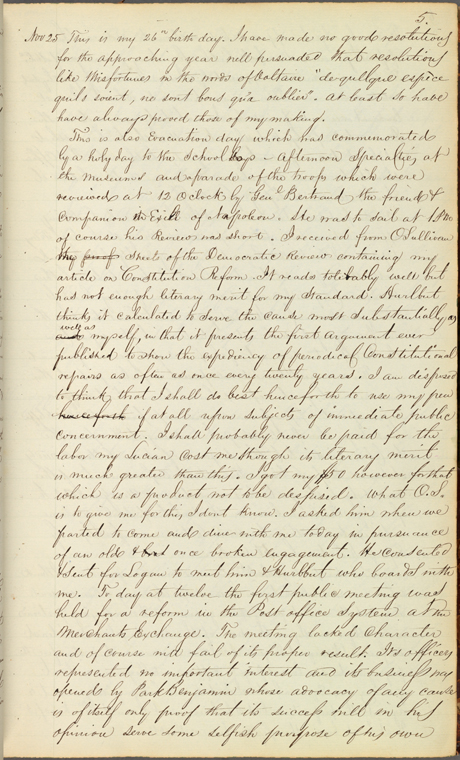 5.
Nov 25 This is my 26th birth day. I have made no good resolutions
for the approaching year well persuaded that resolutions
like Misfortunes in the words of Voltaire "de quelque espece
quils soient, ne sont bons qu'a oublier". At least so have
have always proved those of my making.
This is also Evacuation day which was commemorated
by a holy day to the School boys - afternoon Specialties, at
the museums and a parade of the troops which were
reviewed at 12 O clock by Genl Bertrand the friend &
Companion in Exile of Napoleon. He was to sail at 1
of course his Review was short. I received from O'Sullivan
the proof sheets of the Democratic Review containing my
article on Constitution Reform. It reads tolerably well but
has not enough literary merit for my Standard. Hurlbut
thinks it calculated to serve the cause most substantially as
well as
and myself, in that it presents the first argument ever
published to show the expediency of periodical Constitutional
repairs as often as once every twenty years. I am disposed
to think that I shall do best henceforth to use my pen
henceforth if at all upon subjects of immediate public
concernment. I shall probably never be paid for the
labor my Lucian cost me though its literary merit
is much greater than this. I got my $50 however for that
which is a product not to be despised. What O.S.
is to give me for this I dont know. I asked him when we
parted to come and dine with me today in pursuance
of an old & once broken engagement. He consented
& I sent for Logan to meet him & Hurlbut who boards with
me. To day at twelve the first public meeting was
held for a reform in the Post office System at the
Merchants Exchange. The meeting lacked Character
and of course will fail of its proper result. Its officers
represented no important interest and its business was
opened by Park Benjamin whose advocacy of any cause
is of itself only proof that its success will in his
opinion serve some selfish purpose of his own